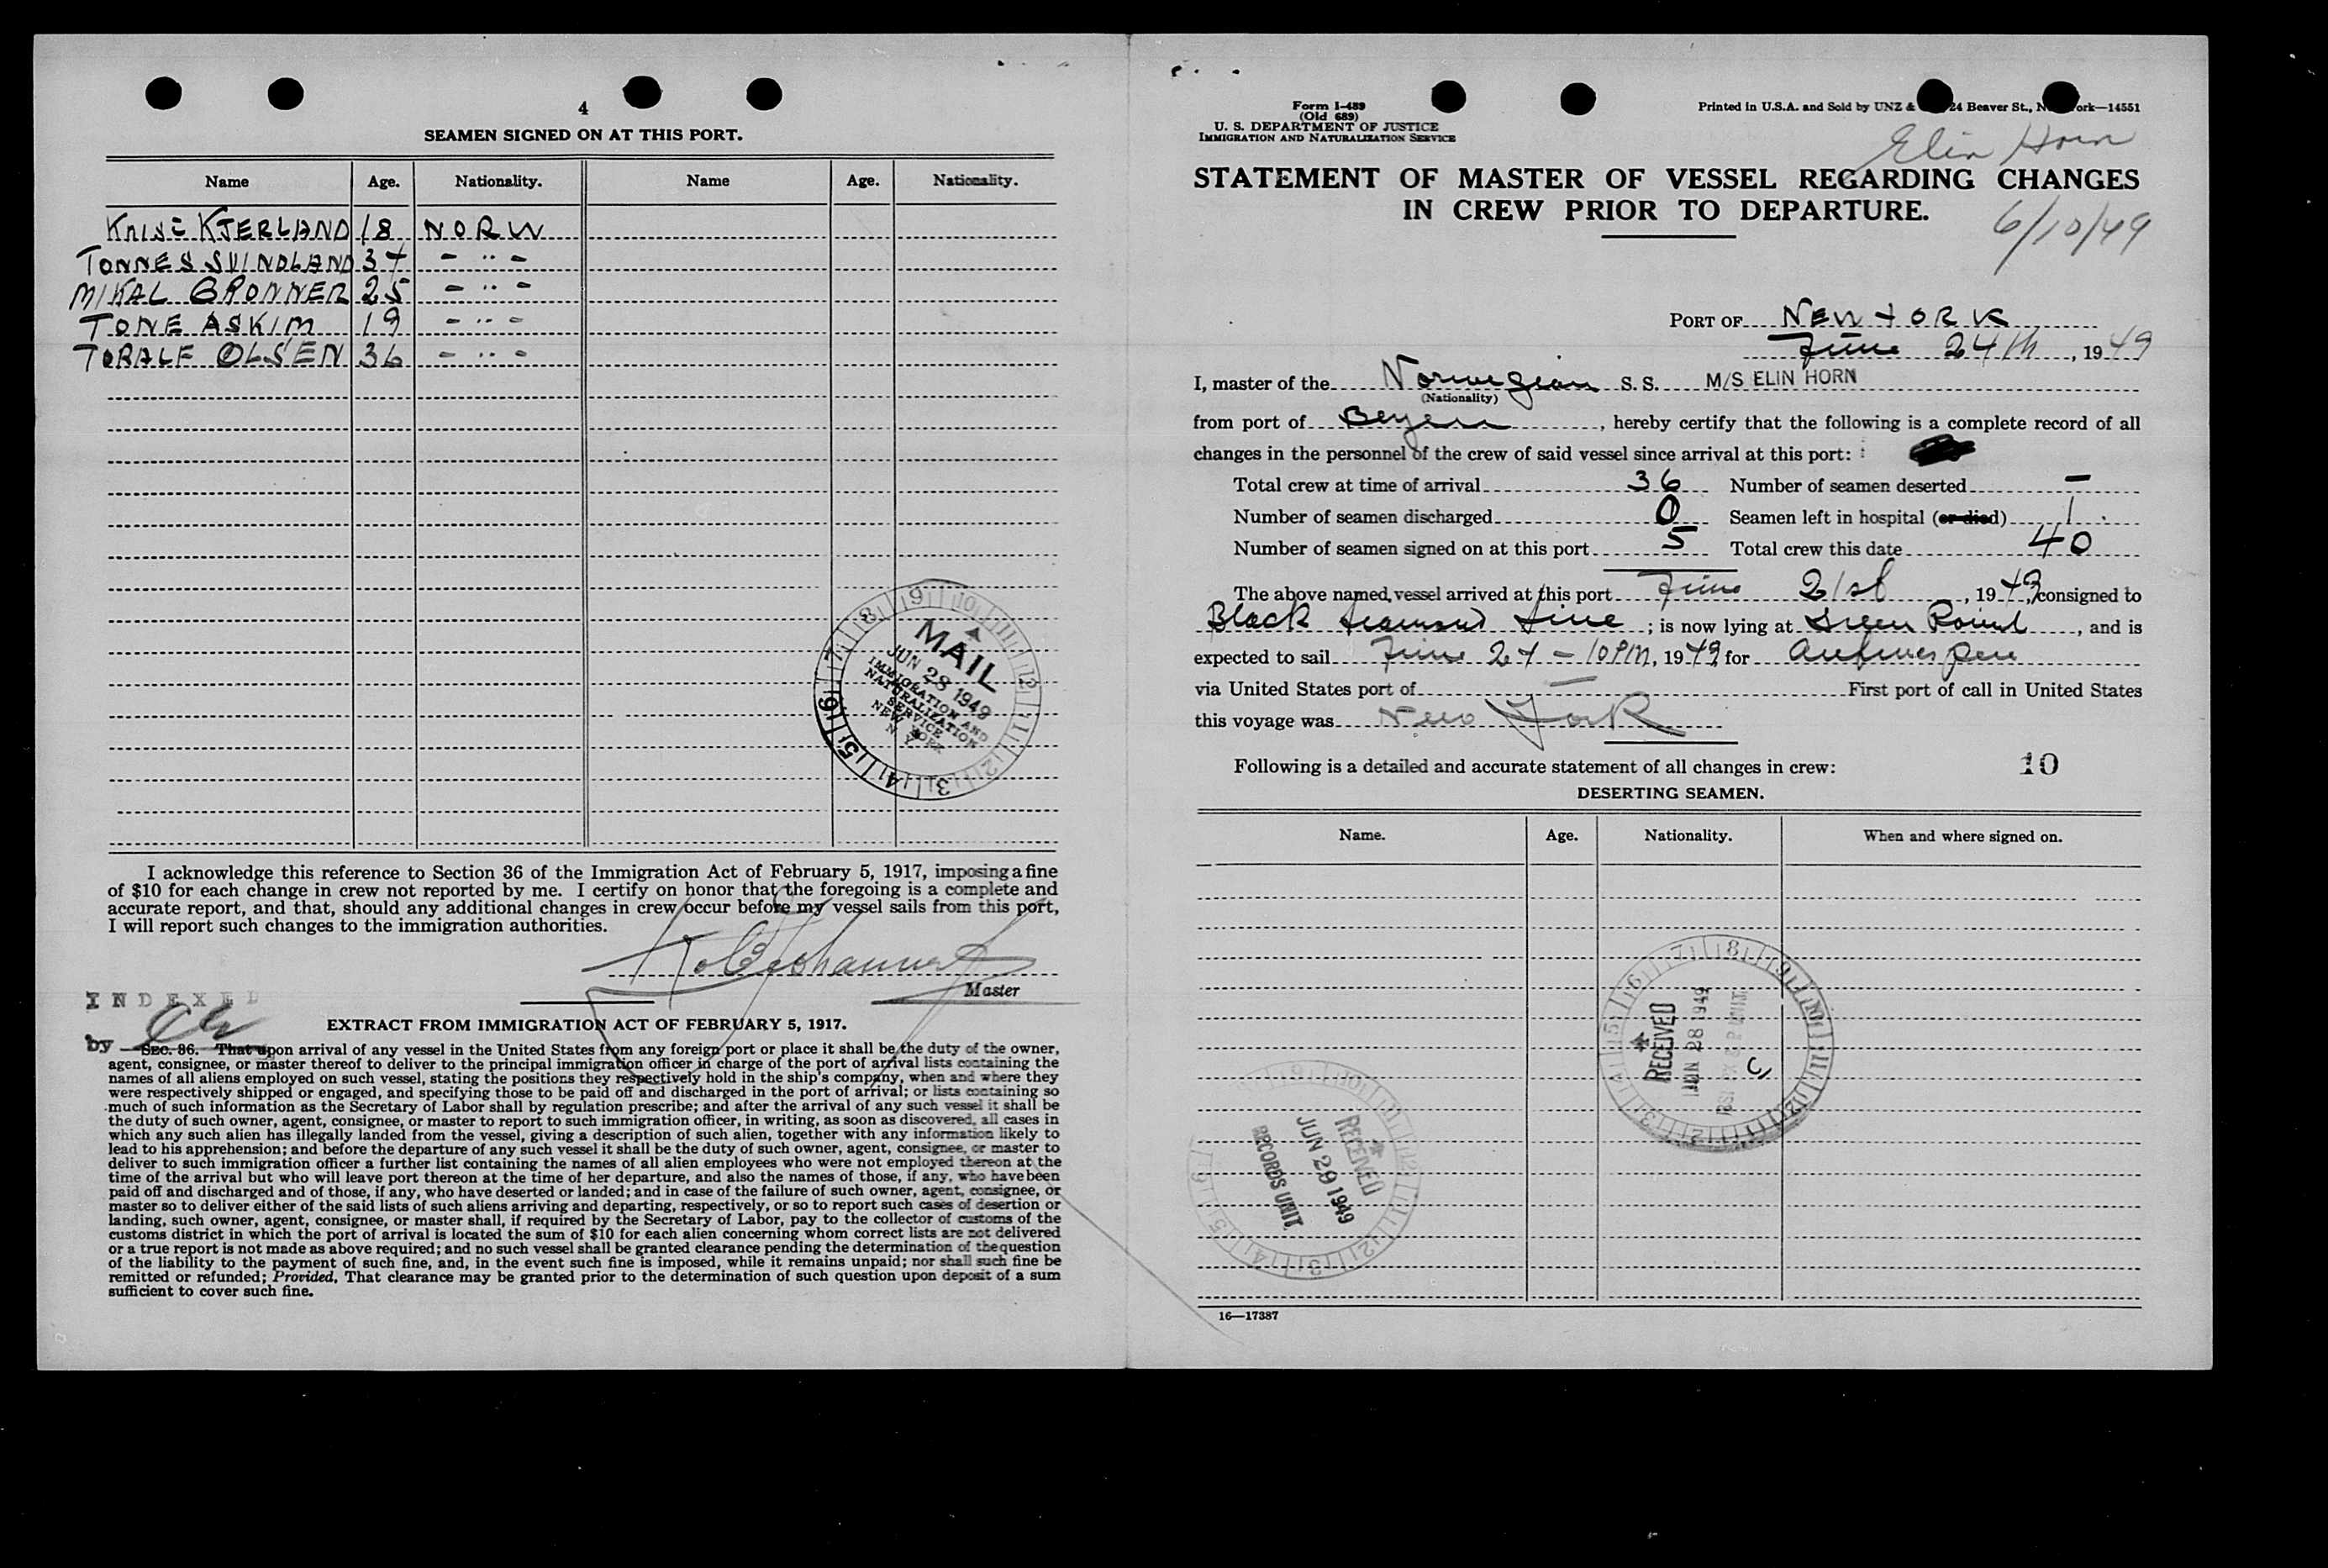 4
SEAMEN SIGNED ON AT THIS PORT.
Name Age. Nationality. Name Age. Nationality.
KJERLAND 18 NORW
TONNES SVINDLAND 34 - " -
MIKAL GRONNER 25 - " -
TONE ASKIM 19 - " -
TORALF OLSEN 36 - " -
MAIL
JUN 28 1949
IMMIGRATION AND
NATURALIZATION
SERVICE
NEW YORK
N. Y.
I acknowledge this reference to Section 36 of the Immigration Act of February 5, 1917, imposing a fine
of $10 for each change in crew not reported by me. I certify on honor that the foregoing is a complete and
accurate report, and that, should any additional changes in crew occur before my vessel sails from this port,
I will report such changes to the immigration authorities.
Master
INDEXED
by
EXTRACT FROM IMMIGRATION ACT OF FEBRUARY 5, 1917.
SEC. 36. That upon arrival of any vessel in the United States from any foreign port or place it shall be the duty of the owner,
agent, consignee, or master thereof to deliver to the principal immigration officer in charge of the port of arrival lists containing the
names of all aliens employed on such vessel, stating the positions they respectively hold in the ship's company, when and where they
were respectively shipped or engaged, and specifying those to be paid off and discharged in the port of arrival; or lists containing so
much of such information as the Secretary of Labor shall by regulation prescribe; and after the arrival of any such vessel it shall be
the duty of such owner, agent, consignee, or master to report to such immigration officer, in writing, as soon as discovered, all cases in
which any such alien has illegally landed from the vessel, giving a description of such alien, together with any information likely to
lead to his apprehension; and before the departure of any such vessel it shall be the duty of such owner, agent, consignee, or master to
deliver to such immigration officer a further list containing the names of all alien employees who were not employed thereon at the
time of the arrival but who will leave port thereon at the time of her departure, and also the names of those, if any, who have been
paid off and discharged and of those, if any, who have deserted or landed; and in case of the failure of such owner, agent, consignee, or
master so to deliver either of the said lists of such aliens arriving and departing, respectively, or so to report such cases of desertion or
landing, such owner, agent, consignee, or master shall, if required by the Secretary of Labor, pay to the collector of customs of the
customs district in which the port of arrival is located the sum of $10 for each alien concerning whom correct lists are not delivered
or a true report is not made as above required; and no such vessel shall be granted clearance pending the determination of the question
of the liability to the payment of such fine, and, in the event such fine is imposed, while it remains unpaid; nor shall such fine be
remitted or refunded; Provided, That clearance may be granted prior to the determination of such question upon deposit of a sum
sufficient to cover such fine.
Form I-489
(Old 689)
U. S. DEPARTMENT OF JUSTICE
IMMIGRATION AND NATURALIZATION SERVICE
Printed in U.S.A. and Sold by UNZ & 24 Beaver St., N ork—14551
Elin Horn
STATEMENT OF MASTER OF VESSEL REGARDING CHANGES
IN CREW PRIOR TO DEPARTURE.
6/10/49
PORT OF NEW YORK
June 24th, 1949
I, master of the Norwegian S. S. M/S ELIN HORN
(Nationality)
from port of Bergen, hereby certify that the following is a complete record of all
changes in the personnel of the crew of said vessel since arrival at this port:
Total crew at time of arrival 36 Number of seamen deserted —
Number of seamen discharged 0 Seamen left in hospital (or died) 1
Number of seamen signed on at this port 5 Total crew this date 40
The above named vessel arrived at this port June 21st, 1949, consigned to
Black Diamond Line; is now lying at Green Point, and is
expected to sail June 24 - 10 PM, 1949 for Antwerpen
via United States port of — First port of call in United States
this voyage was New York
Following is a detailed and accurate statement of all changes in crew: 10
DESERTING SEAMEN.
Name. Age. Nationality. When and where signed on.
RECEIVED
JUN 28 1949
RECEIVED
JUN 29 1949
RECORDS UNIT
16—17387